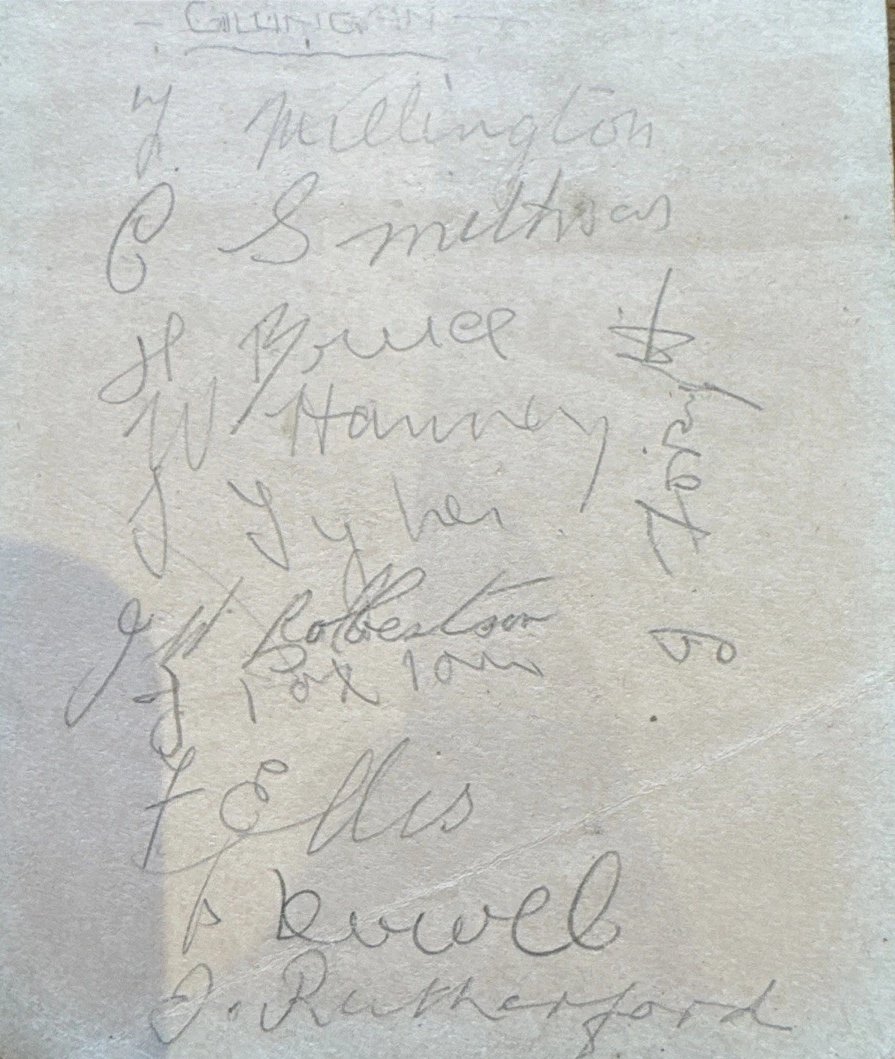 - GILLINGHAM -
J. Millington
C Smithson
H Bruce
W Hanney
J Tyler
J W Robertson
J Paxton
F Ellis
P Durwel
J. Rutherford